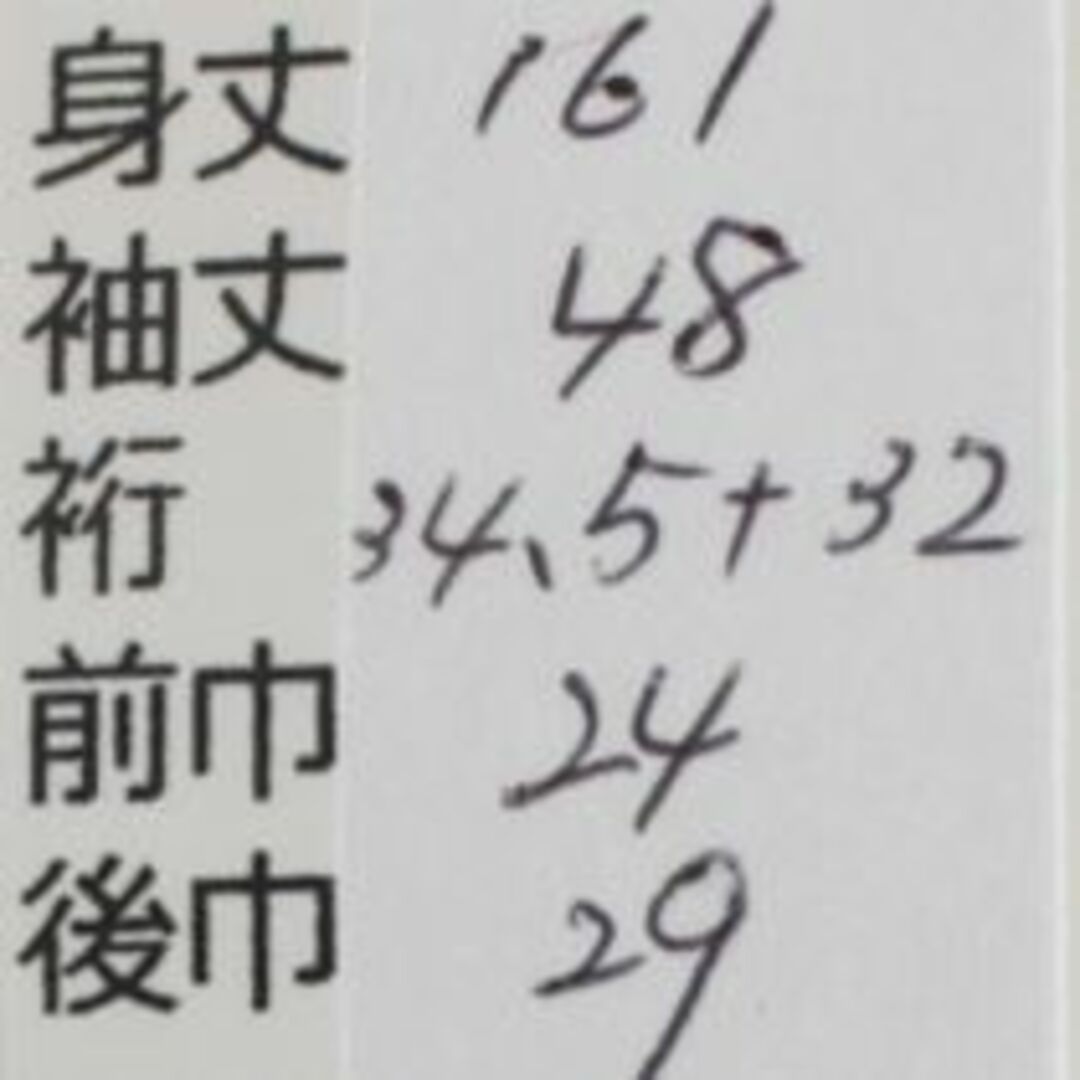 身丈 161
袖丈 48
裄 34、5+32
前巾 24
後巾 29